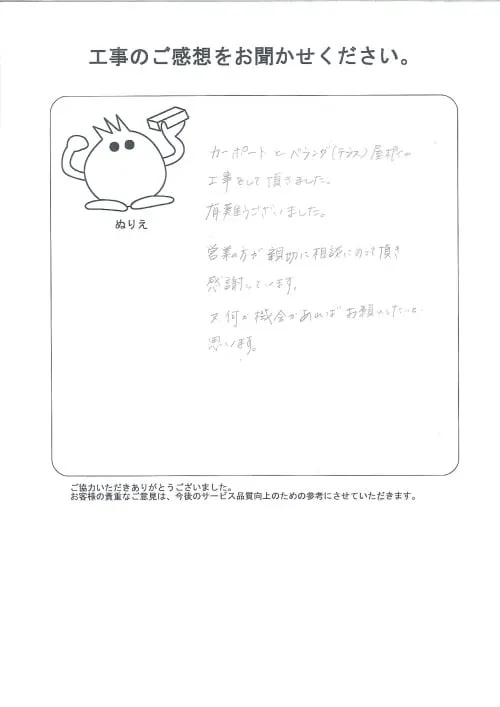 工事のご感想をお聞かせください。
カーポートとベランダ(テラス)屋根の
工事をして頂きました。
有難うございました。
営業の方が親切に相談にのって頂き
感謝しています。
又何か機会があればお願いしたいと
思います。
ぬりえ
ご協力いただきありがとうございました。
お客様の貴重なご意見は、今後のサービス品質向上のための参考にさせていただきます。